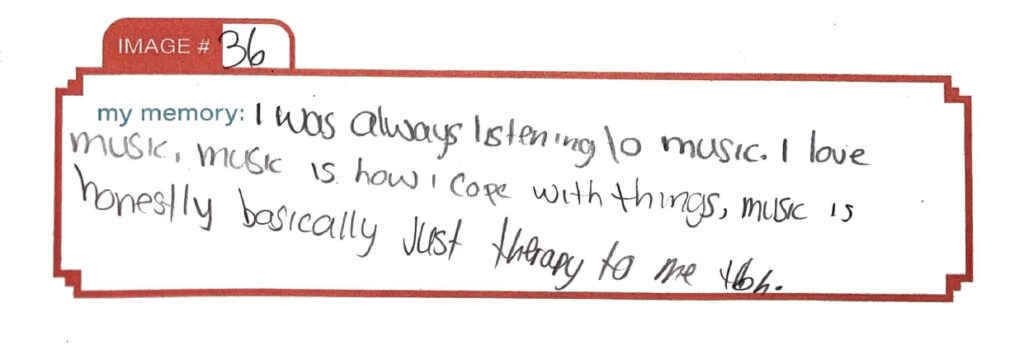 IMAGE # 36
my memory: I was always listening to music. I love
music, music is how i cope with things, music is
honestly basically just therapy to me tbh.